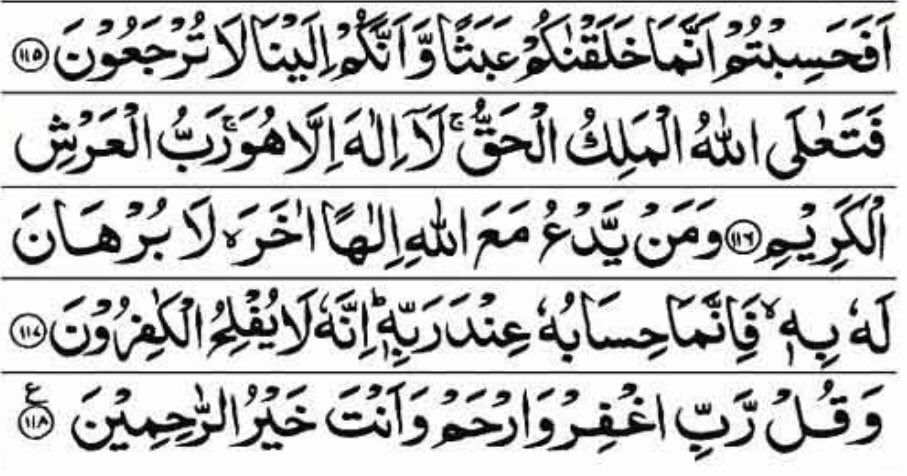 اَفَحَسِبْتُمْ اَنَّمَا خَلَقْنٰكُمْ عَبَثًا وَّ اَنَّكُمْ اِلَيْنَا لَا تُرْجَعُوْنَ ﴿۱۱۵﴾
فَتَعٰلَى اللّٰهُ الْمَلِكُ الْحَقُّ ۚ لَاۤ اِلٰهَ اِلَّا هُوَ ۚ رَبُّ الْعَرْشِ
الْكَرِيْمِ ﴿۱۱۶﴾ وَ مَنْ يَّدْعُ مَعَ اللّٰهِ اِلٰهًا اٰخَرَ ۙ لَا بُرْهَانَ
لَهٗ بِهٖ ۙ فَاِنَّمَا حِسَابُهٗ عِنْدَ رَبِّهٖ ؕ اِنَّهٗ لَا يُفْلِحُ الْكٰفِرُوْنَ ﴿۱۱۷﴾
وَ قُلْ رَّبِّ اغْفِرْ وَ ارْحَمْ وَ اَنْتَ خَيْرُ الرّٰحِمِيْنَ ﴿۱۱۸﴾ ع